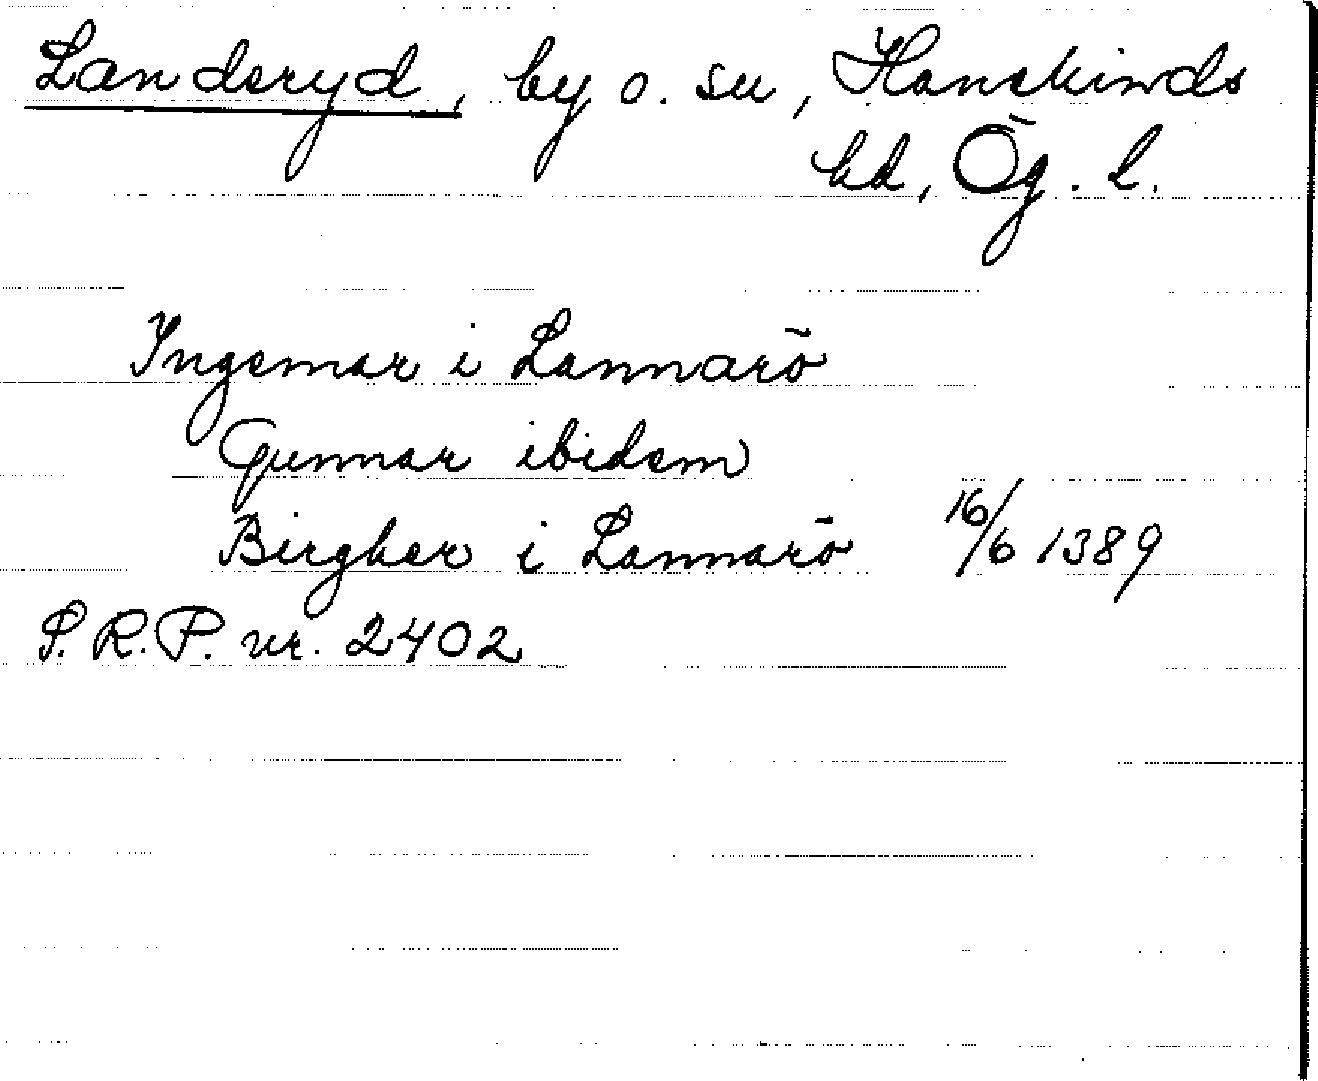 Landeryd, by o. sn, Hanekinds
hd, Ög. l.
Ingemar i Lannarö
Gunnar ibidem
Birgher i Lannarö 16/6 1389
S.R.P. nr. 2402